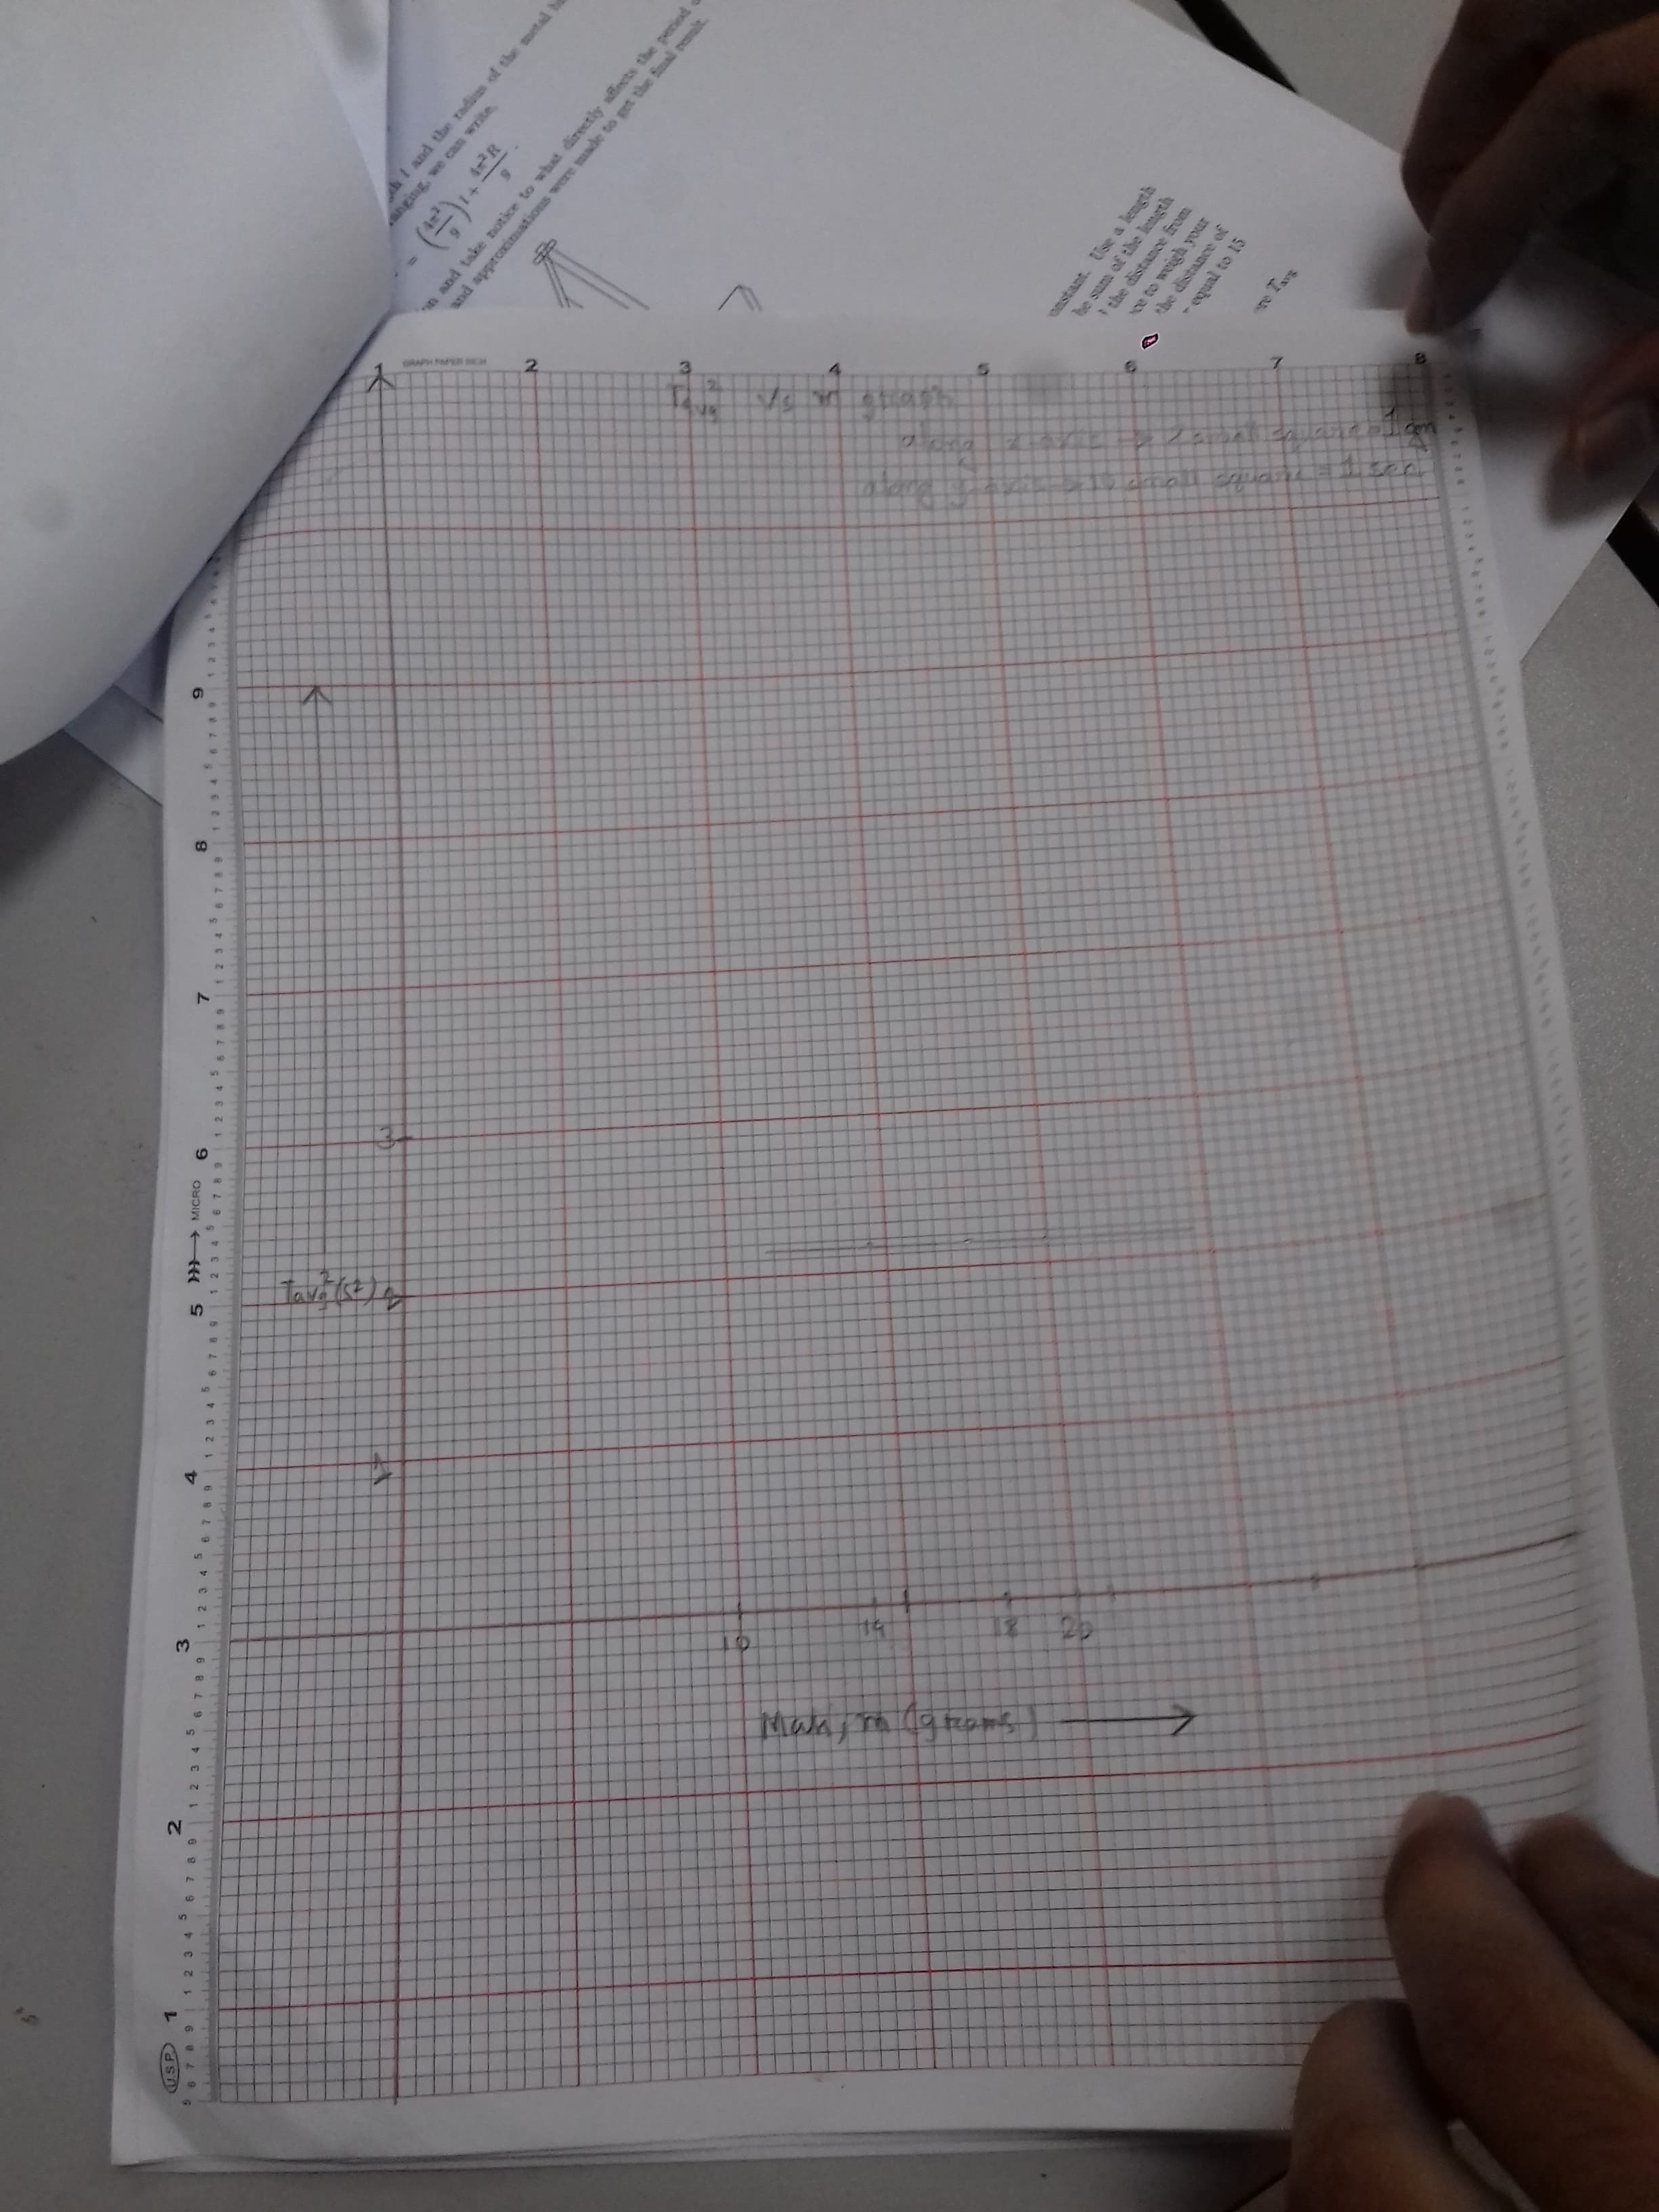 th l and the radius of the metal
anging, we can write,
= (4π²/g) l + 4π²R/g .
n and take notice to what directly affects the period
and approximations were made to get the final result.
nstant. Use a length
he sum of the length
the distance from
ce to weigh your
the distance of
equal to 15
re Tavg
GRAPH PAPER
1 2 3 4 5 6 7 8
Tavg² v/s m graph
along x-axis → 2 small square = 1 gm
along y-axis → 10 small square = 1 sec
9
8
7
6
MICRO
5
4
3
2
1
U.S.P
3
Tavg² (s²) 2
1
10 14 18 20
Mass, m (grams)